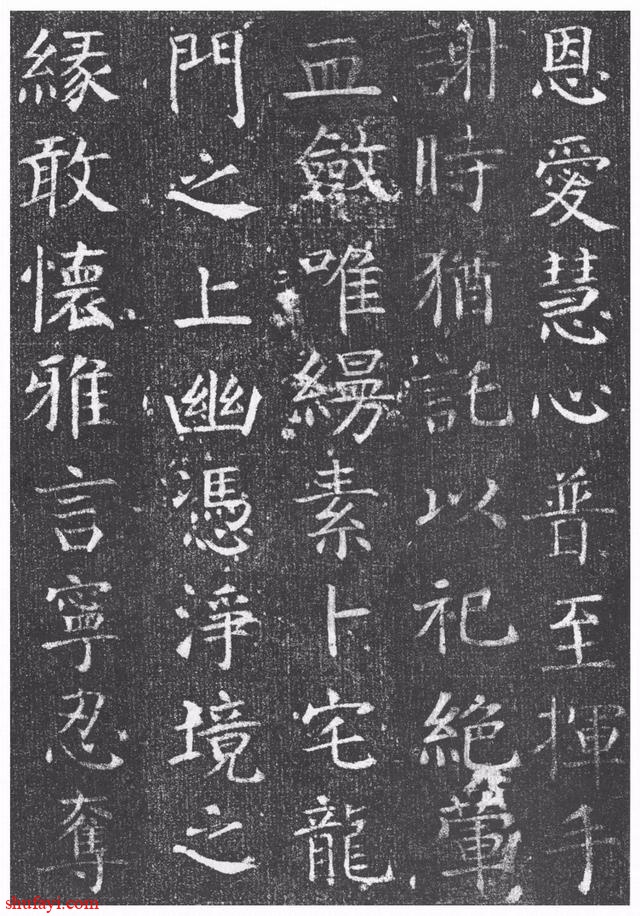 恩愛慧心普至揮手
謝時猶託以祀絕葷
血斂唯縵素卜宅龍
門之上幽憑淨境之
緣敢懷雅言寧忍奪
shufayi.com